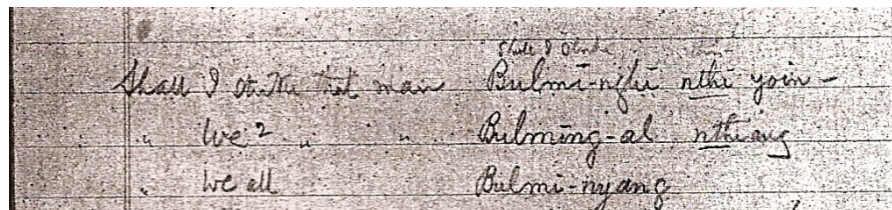 Shall I
Shall I strike that man Bulmi-nghi nthi yoin -
" We 2 " " Bulming-al nthiang
" We all Bulmi-nyang